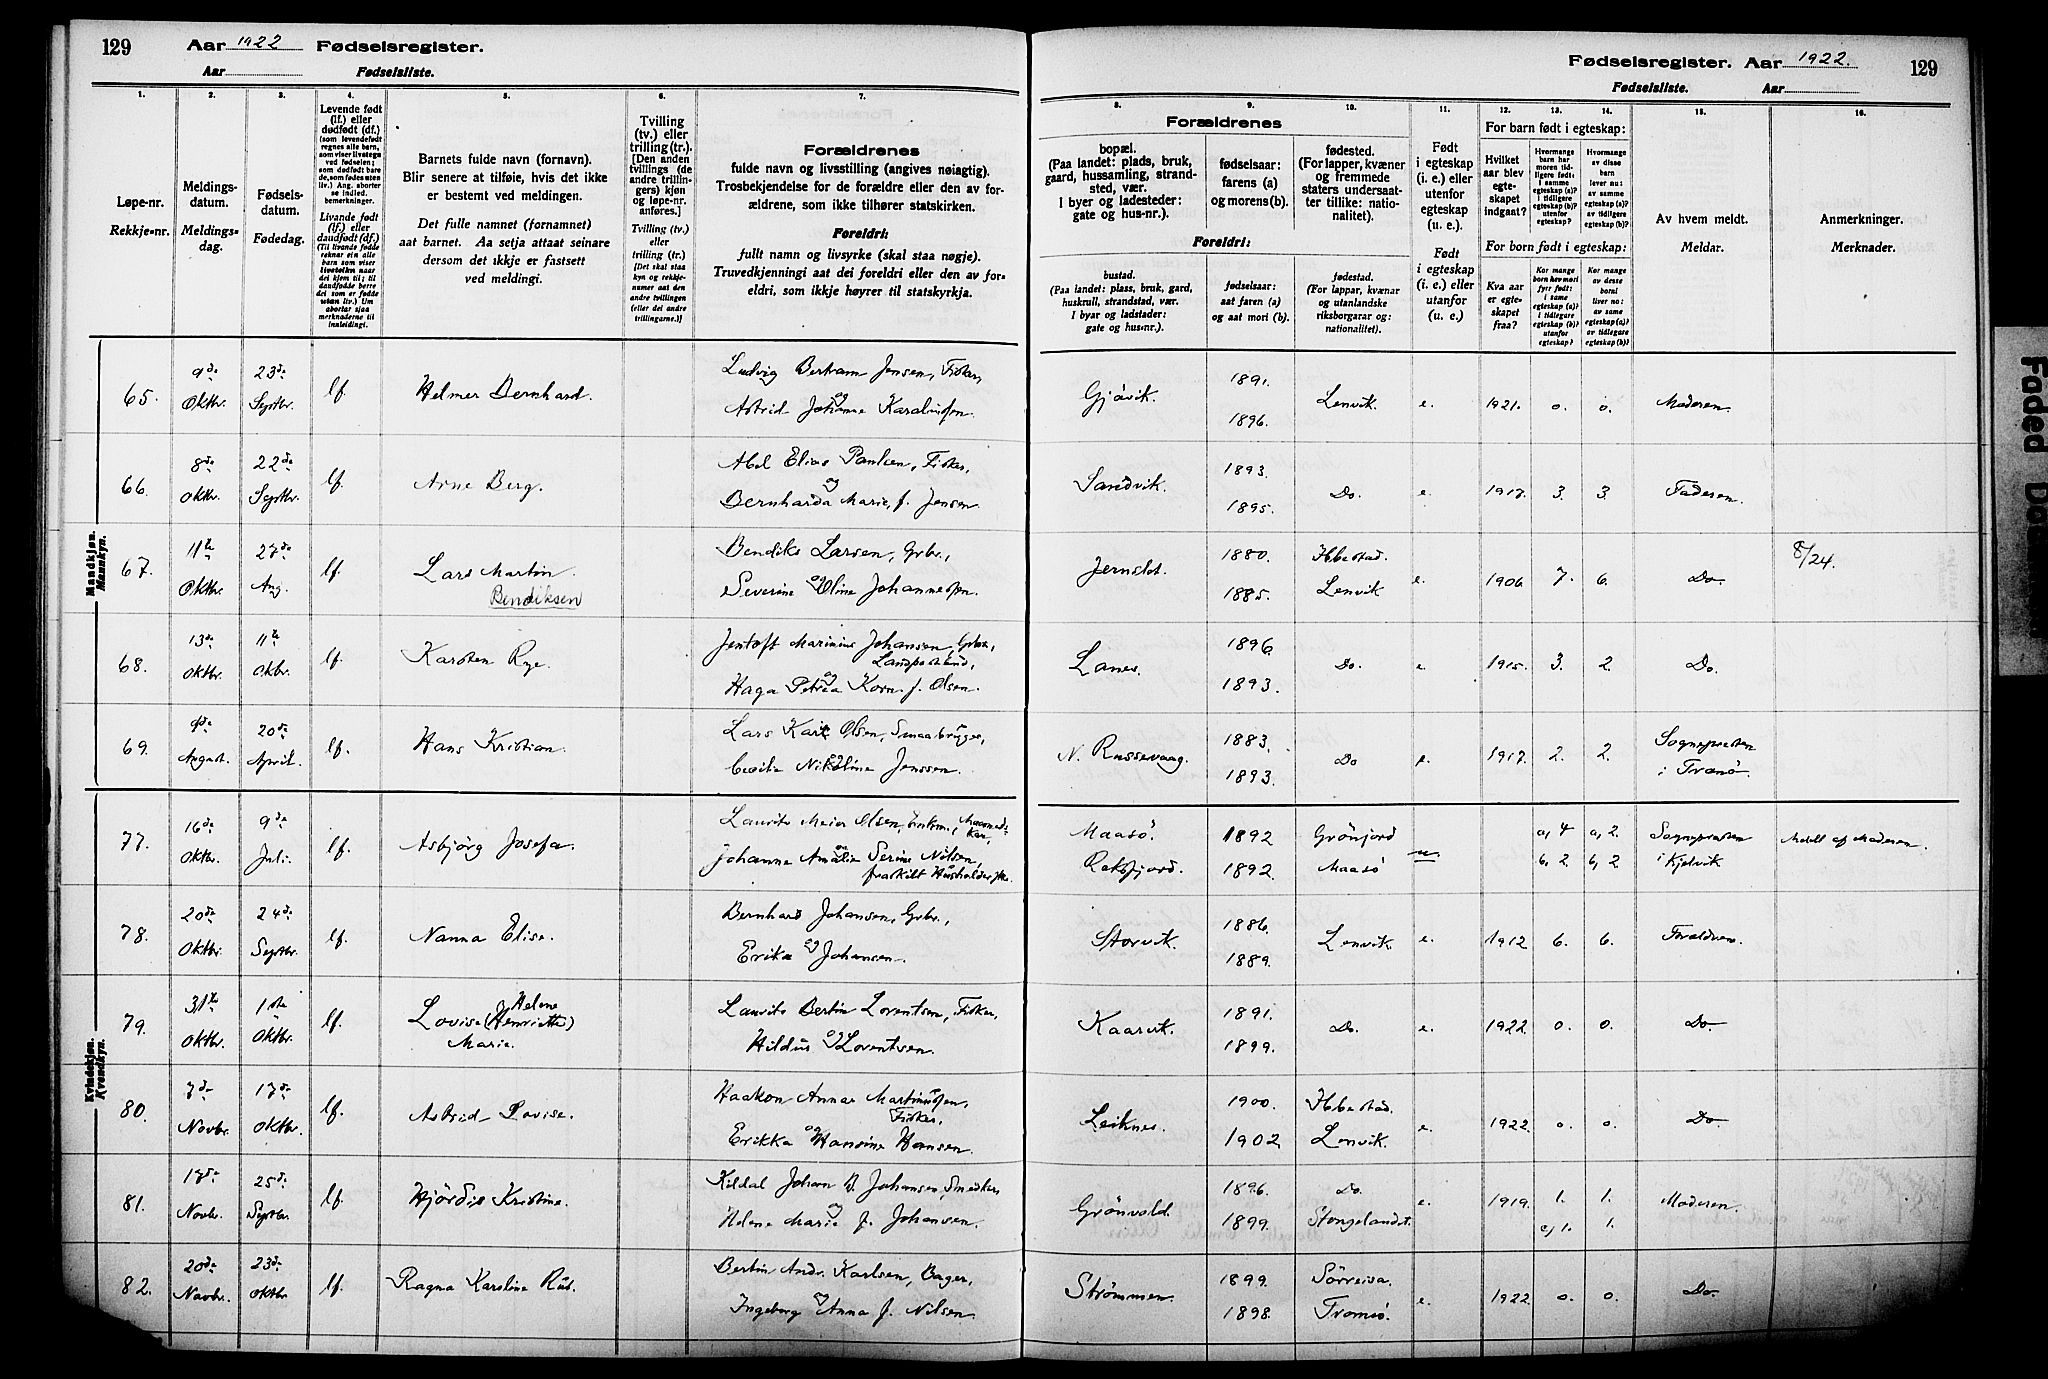 129
Aar 1922 Fødselsregister.
Aar Fødselsliste.
Fødselsregister. Aar 1922.
129
Fødselsliste. Aar
1. 2. 3. 4. 5. 6. 7. 8. 9. 10. 11. 12. 13. 14. 15. 16.
Løpe-nr.
Rekkje-nr.
Meldings-
datum.
Meldings-
dag.
Fødsels-
datum.
Fødedag.
Levende født
(lf.) eller
dødfødt (df.)
(som levendefødt
regnes alle barn,
som viser livstegn
ved fødselen;
som dødfødt bare
de, som fødes uten
liv.) Ang. aborter
se indled.
bemerkninger.
Livande født
(lf.) eller
daudfødt (df.)
(Til livande fødde
reknar ein alle
born som viser
livsteikn naar
dei kjem til; til
daudfødde berre
dei som er fødde
utan liv.) Um
abortar sjaa
merknaderne til
innleidingi.
Barnets fulde navn (fornavn).
Blir senere at tilføie, hvis det ikke
er bestemt ved meldingen.
Det fulle namnet (fornamnet)
aat barnet. Aa setja attaat seinare
dersom det ikkje er fastsett
ved meldingi.
Tvilling
(tv.) eller
trilling (tr.)
[Den anden
tvillings (de
andre trillin-
gers) kjøn
og løpe-nr.
anføres.]
Tvilling (tv.)
eller
trilling (tr.)
[Det skal staa
kyn og rekkje-
numer aat den
andre tvillingen
(eller dei andre
trillingarne.)]
Forældrenes
fulde navn og livsstilling (angives nøiagtig).
Trosbekjendelse for de forældre eller den av for-
ældrene, som ikke tilhører statskirken.
Foreldri:
fullt namn og livsyrke (skal staa nøgje).
Truvedkjenningi aat dei foreldri eller den av for-
eldri, som ikkje høyrer til statskyrkja.
Forældrenes
bopæl.
(Paa landet: plads, bruk,
gaard, hussamling, strand-
sted, vær.
I byer og ladesteder:
gate og hus-nr.).
fødselsaar:
farens (a)
og morens (b).
fødested.
(For lapper, kvæner
og fremmede
staters undersaat-
ter tillike: natio-
nalitet).
Foreldri:
bustad.
(Paa landet: plass, bruk, gard,
huskrull, strandstad, vær.
I byar og ladstader:
gate og hus-nr.).
fødselsaar:
aat faren (a)
og aat mori (b).
fødestad.
(For lappar, kvænar
og utanlandske
riksborgarar og:
nationalitet).
Født
i egteskap
(i. e.) eller
utenfor
egteskap
(u. e.).
Født
i egteskap
(i. e.) eller
utanfor
egteskap
(u. e.).
For barn født i egteskap:
Hvilket
aar blev
egte-
skapet
indgaat?
Hvormange
barn har
moren tid-
ligere født
i samme
egteskap (a)?
i tidligere
egteskap (b)?
utenfor
egteskap?
Hvormange
av disse
barn
lever nu:
av samme
egteskap (a)?
av tidligere
egteskap (b)?
For born født i egteskap:
Kva aar
er egte-
skapet
fraa?
Kor mange
born hev mori
fyrr født:
i same
egteskap (a)?
i tidlegare
egteskap (b)?
utanfor
egteskap?
Kor mange
av desse
borni
liver no:
av same
egteskap (a)?
av tidlegare
egteskap (b)?
Av hvem meldt.
Meldar.
Anmerkninger.
Merknader.
Mandkjøn.
Mannkyn.
65. 9de Oktbr. 23de Septbr. lf. Helmer Bernhard. Ludvig Bertram Jensen, Fisker, og Astrid Johanne Karoliussen. Gjövik. 1891. 1896. Lenvik. e. 1921. 0. 0. Moderen.
66. 8de Oktbr. 22de Septbr. lf. Arne Berg. Abel Elias Paulsen, Fisker, og Bernharda Marie, f. Jensen. Sandvik. 1893. 1895. Do. e. 1917. 3. 3. Faderen.
67. 11te Oktbr. 27de Aug. lf. Lars Martin. Bendiksen Bendiks Larsen, Grbr., og Severine Oline Johannessen. Jernslet. 1880. 1885. Ibbestad. Lenvik e. 1906. 7. 6. Do. 8/24.
68. 13de Oktbr. 11te Okbr. lf. Karsten Rye. Jentoft Marinius Johansen, Grbr., Landpostbud, og Haga Petrea Korn. f. Olsen. Lanes. 1896. 1893. Do. e 1915. 3. 2. Do.
69. 9de August. 20de April. lf. Hans Kristian. Lars Karl Olsen, Smaabruger, og Cecilie Nikoline Jenssen. N. Russevaag. 1883. 1893. Do e. 1917. 2. 2. Sognepresten i Tranö.
Kvindekjøn.
Kvendkyn.
77. 16de Oktbr. 9de Juli. lf. Asbjörg Josefa. Laurits Meier Olsen, Enkem., og Johanne Amalie Serine Nilsen, fraskilt Maasö. Refsfjord. 1892 1892. Grönfjord Maasö u. a, 4 b, 2 a, 2. b, 2 Sognepresten i Kjelvik Meldt af Moderen.
78. 20de Oktbr. 24de Septbr. lf. Nanna Elise. Bernhard Johansen, Grbr., og Erika Johansen. Storvik. 1886. 1889. Lenvik e. 1912 6. 6. Forældren.
79. 31te Oktbr. 1ste Oktbr. lf. Lovise (Henriette) Helene Marie. Laurits Bertin Lorentsen, Fisker, og Hildur Lorentsen. Kaarvik. 1891. 1899. Do. e. 1922 0. 0. Do.
80. 7de Novbr. 17de Oktbr. lf. Astrid Lovise. Haakon Annar Martinussen, Fisker, og Erikka Hansine Hansen. Leiknes. 1900. 1902 Ibbestad. Lenvik. e. 1922. 0. 0. Do.
81. 17de Novbr. 25de Septbr. lf. Hjördis Kristine. Kildal Johan B. Johansen, Snedker og Helene Marie f. Johansen. Grönvold. 1896. 1899. Do. Stongelandet. e. 1919. 1. c, 1. 1. 1. Moderen.
82. 20de Novbr. 23de Oktbr. lf. Ragna Karoline Rut. Bertin Andr. Karlsen, Bager, og Ingeborg Anna f. Nilsen Strömmen. 1899. 1898. Sörreisa. Tromsö. e. 1922 0. 0. Do.
Faded